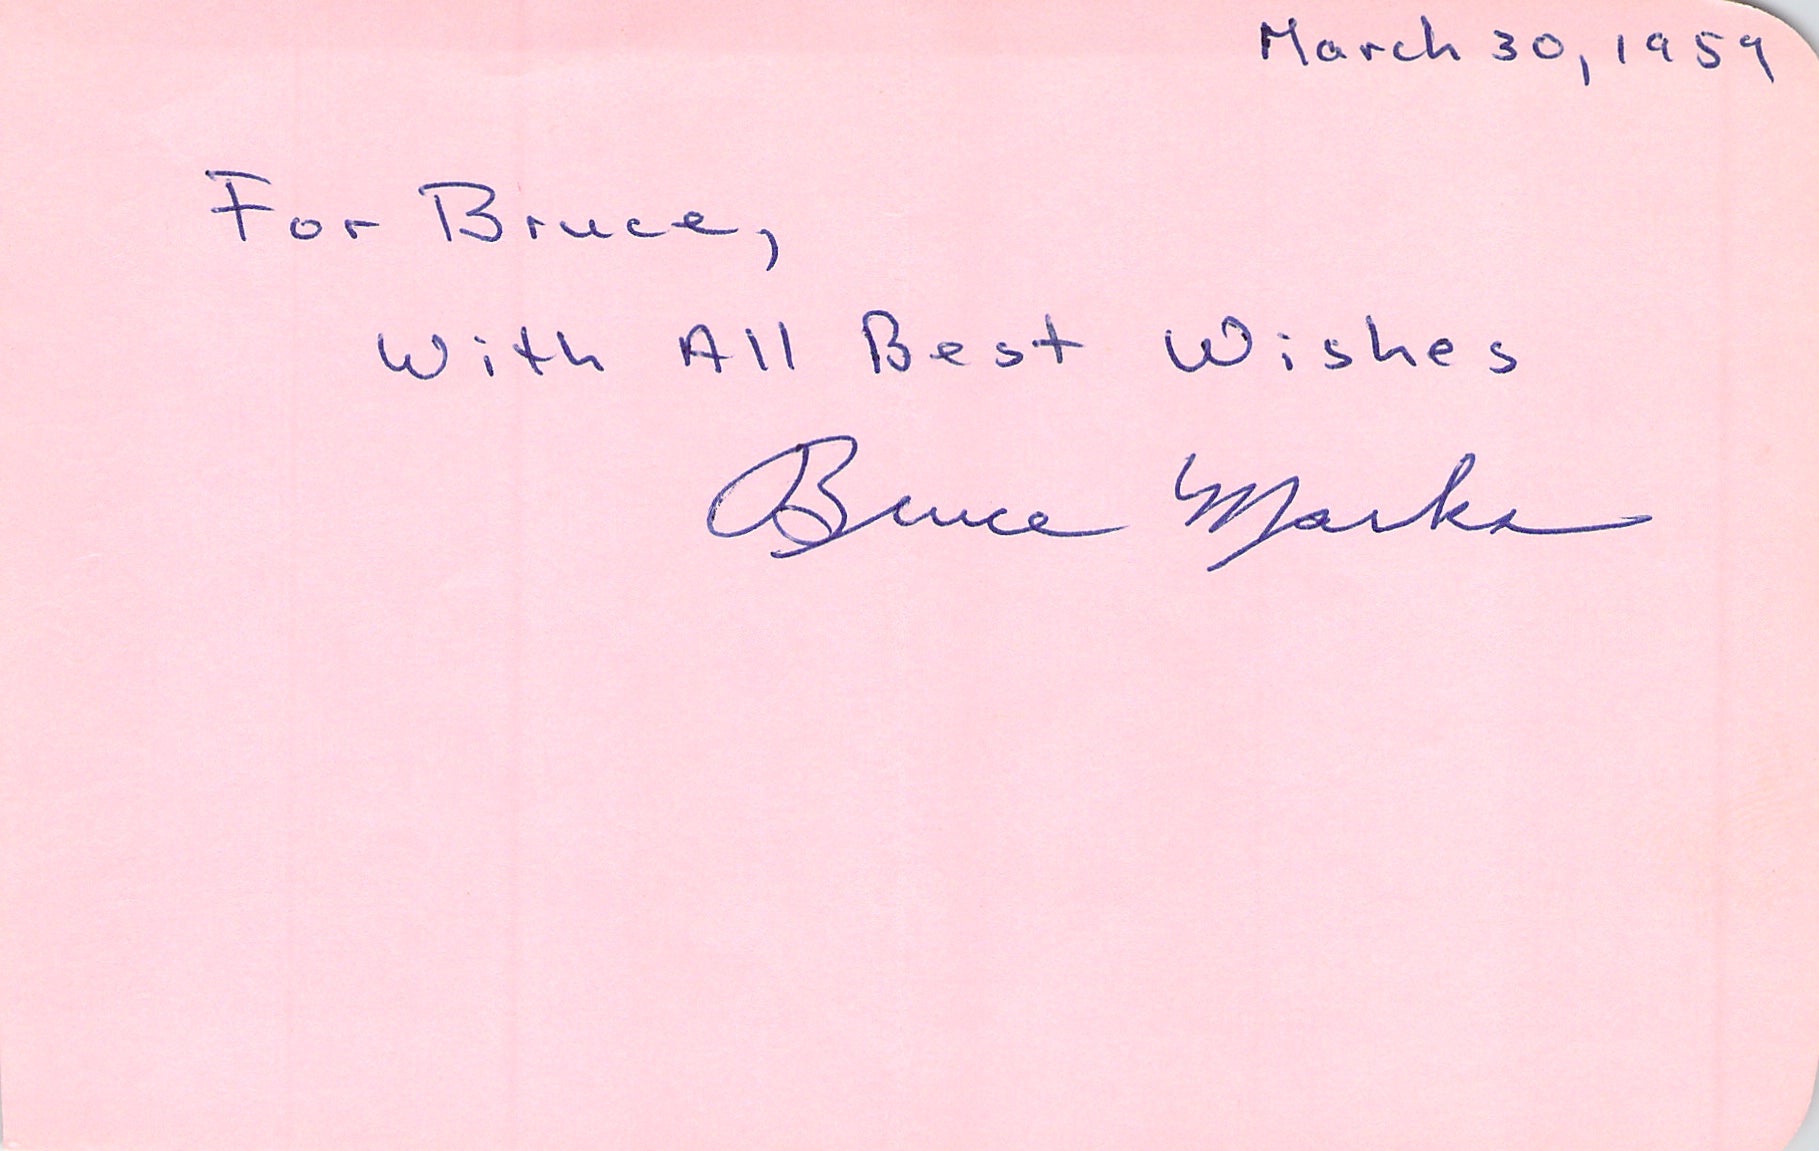 March 30, 1959
For Bruce,
With All Best Wishes
Bruce Marks